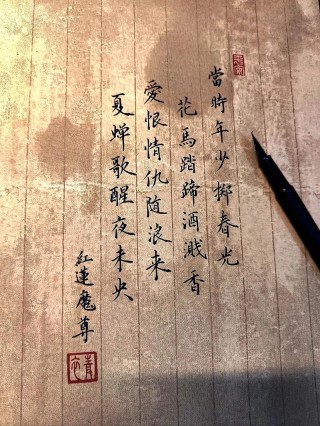 當時年少擲春光
花馬踏蹄酒濺香
愛恨情仇随浪来
夏蝉歌醒夜未央
紅蓮魔尊